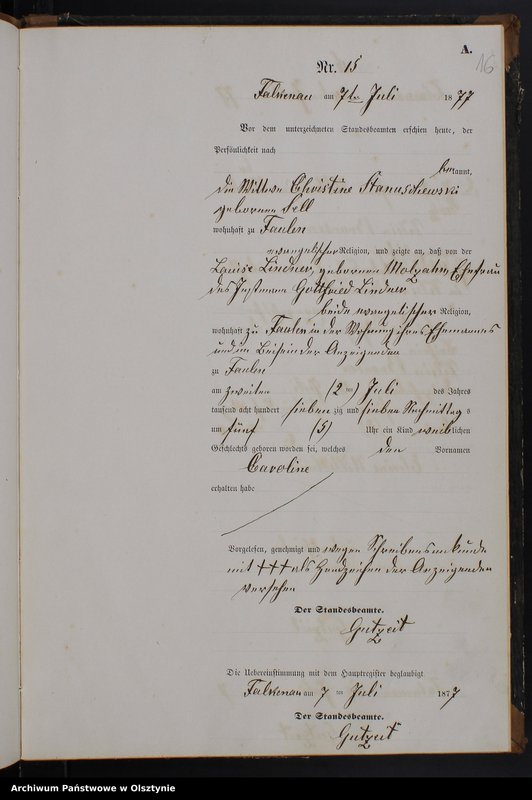 A.
16
Nr. 15
Falkenau am 7ten Juli 1877
Vor dem unterzeichneten Standesbeamten erschien heute, der
Persönlichkeit nach
bekannt,
die Wittwe Christine Stanuschewski
geborene Sell
wohnhaft zu Faulen
evangelischer Religion, und zeigte an, daß von der
Louise Lindner, geborenen Malzahn, Ehefrau
des Instmann Gottfried Lindner
beide evangelischer Religion,
wohnhaft zu Faulen in der Wohnung ihres Ehemannes
und im Beisein der Anzeigenden
zu Faulen
am zweiten (2ten) Juli des Jahres
tausend acht hundert sieben zig und sieben Nachmittags
um fünf (5) Uhr ein Kind weiblichen
Geschlechts geboren worden sei, welches den Vornamen
Caroline
erhalten habe
Vorgelesen, genehmigt und wegen Schreibensunkunde
mit +++ als Handzeichen der Anzeigenden
versehen
Der Standesbeamte.
Gutzeit
Die Uebereinstimmung mit dem Hauptregister beglaubigt
Falkenau am 7ten Juli 1877
Der Standesbeamte.
Gutzeit
Archiwum Państwowe w Olsztynie